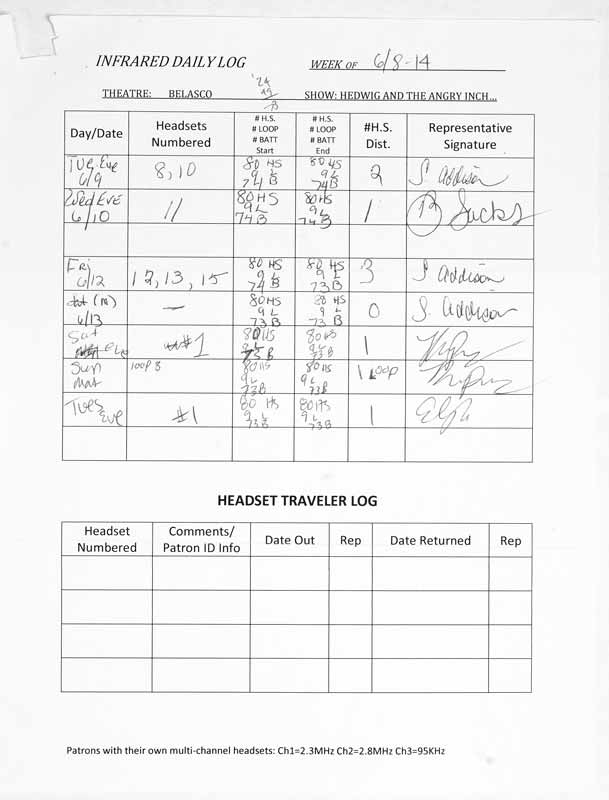 INFRARED DAILY LOG WEEK OF 6/8-14
THEATRE: BELASCO SHOW: HEDWIG AND THE ANGRY INCH...
Day/Date Headsets Numbered # H.S. # LOOP # BATT Start # H.S. # LOOP # BATT End #H.S. Dist. Representative Signature
Tue Eve 6/9 8, 10 80 HS 9L 74 B 80 HS 9L 74B 2 S Addison
Wed EVE 6/10 11 80HS 9L 74B 80HS 9L 74B 1 B Sucks
Fri 6/12 12, 13, 15 80 HS 9 L 74 B 80 HS 9 L 74 B 3 S Addison
(M) 6/13 — 80HS 9 L 73 B 80 HS 9 L 73 B 0 S. Addison
Sat eve #1 80HS 9L 73 B 80HS 9L 73 B 1
Sun Mat loop 8 80 HS 9L 73B 80 HS 9L 73B 1 LOOP
Tues Eve #1 80 HS 9 L 73B 80 HS 9 L 73B 1
HEADSET TRAVELER LOG
Headset Numbered Comments/ Patron ID Info Date Out Rep Date Returned Rep
Patrons with their own multi-channel headsets: Ch1=2.3MHz Ch2=2.8MHz Ch3=95KHz